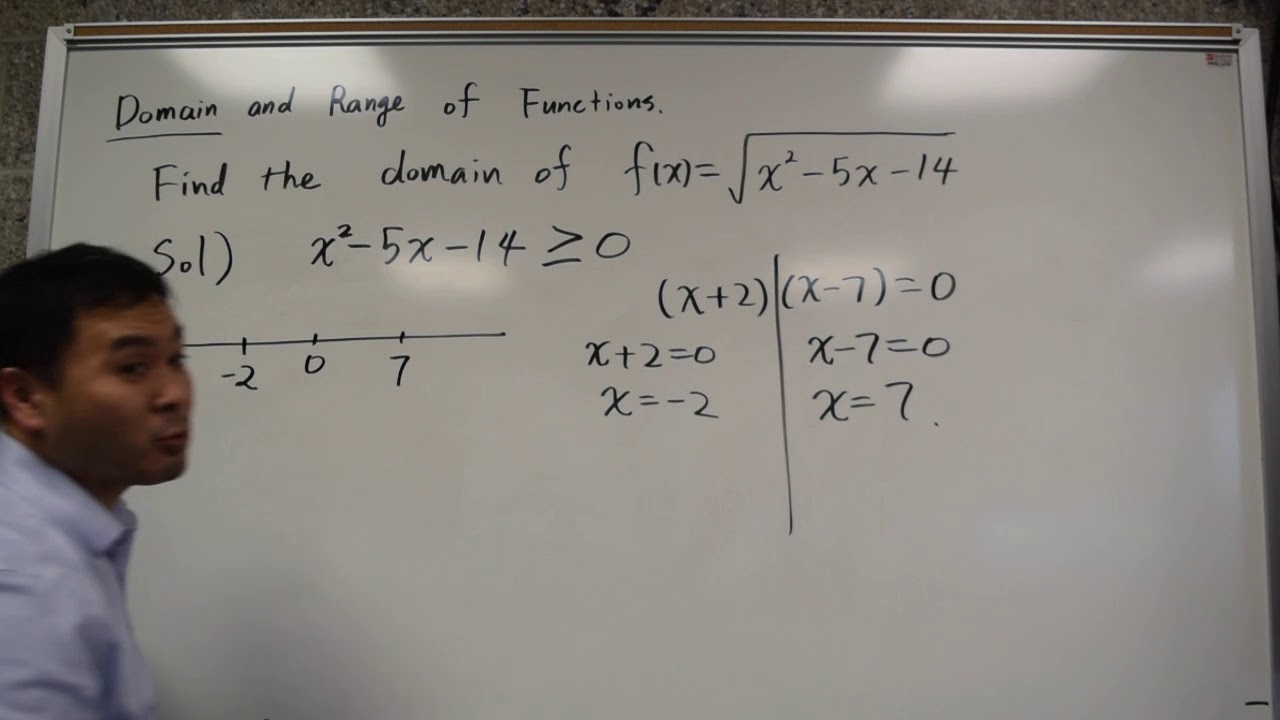 Domain and Range of Functions.
Find the domain of f(x)=√(x²-5x-14)
Sol) x²-5x-14≥0
(x+2)|(x-7)=0
x+2=0 | x-7=0
x=-2 | x=7.
-2 0 7